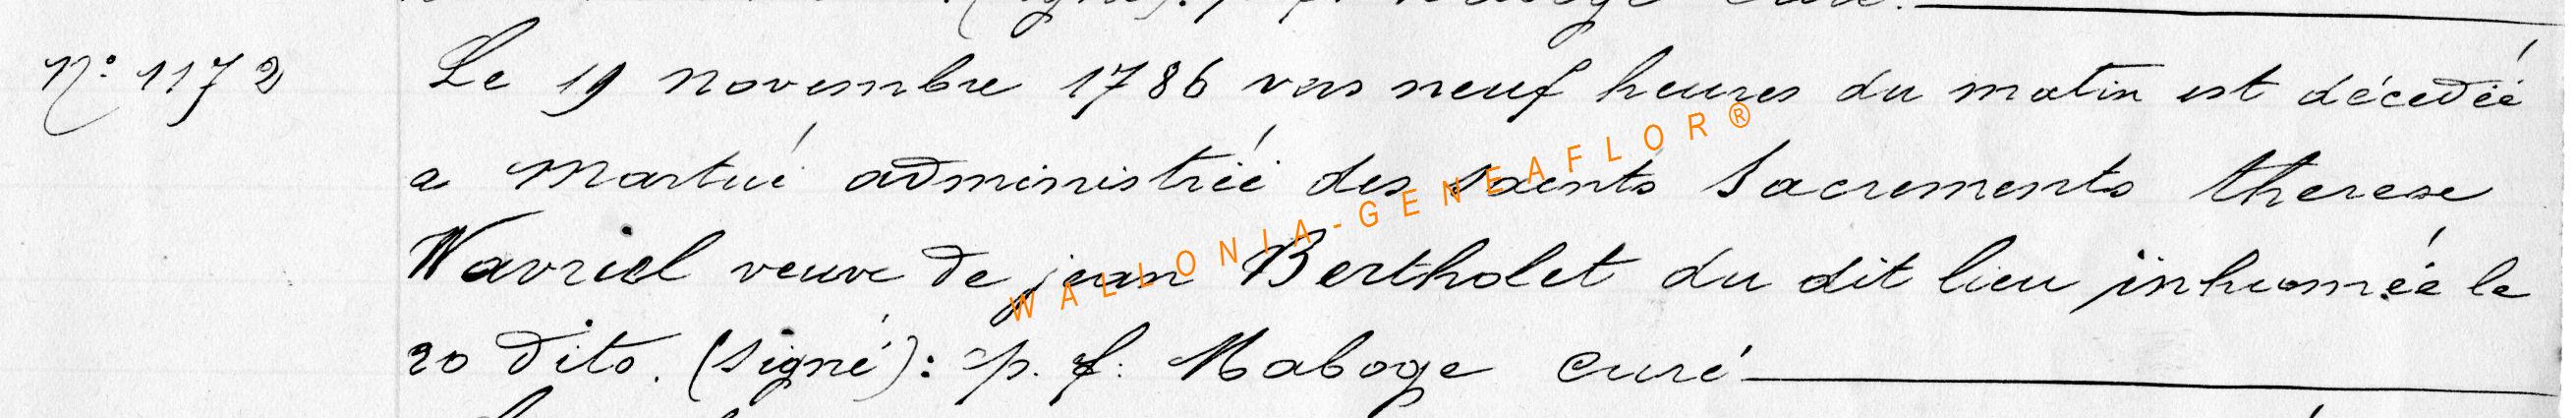 N° 1172 Le 19 novembre 1786 vers neuf heures du matin est décédée
a Martué administrée des saents Sacrements therese
Wavriel veuve de jean Bertholet du dit lieu inhumée le
20 dito. (signé): p. f. Maboge curé
WALLONIA-GENEAFLOR®